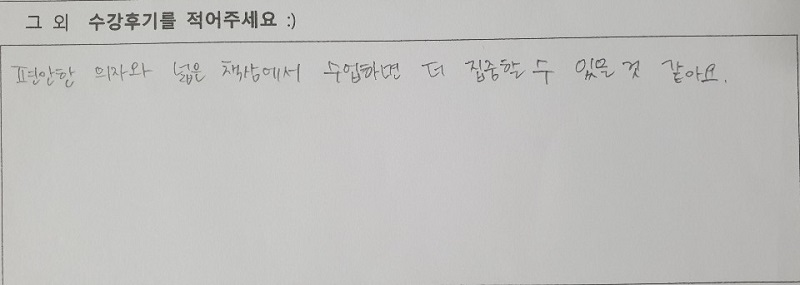 그 외 수강후기를 적어주세요 :)
편안한 의자와 넓은 책상에서 수업하면 더 집중할 수 있을 것 같아요.